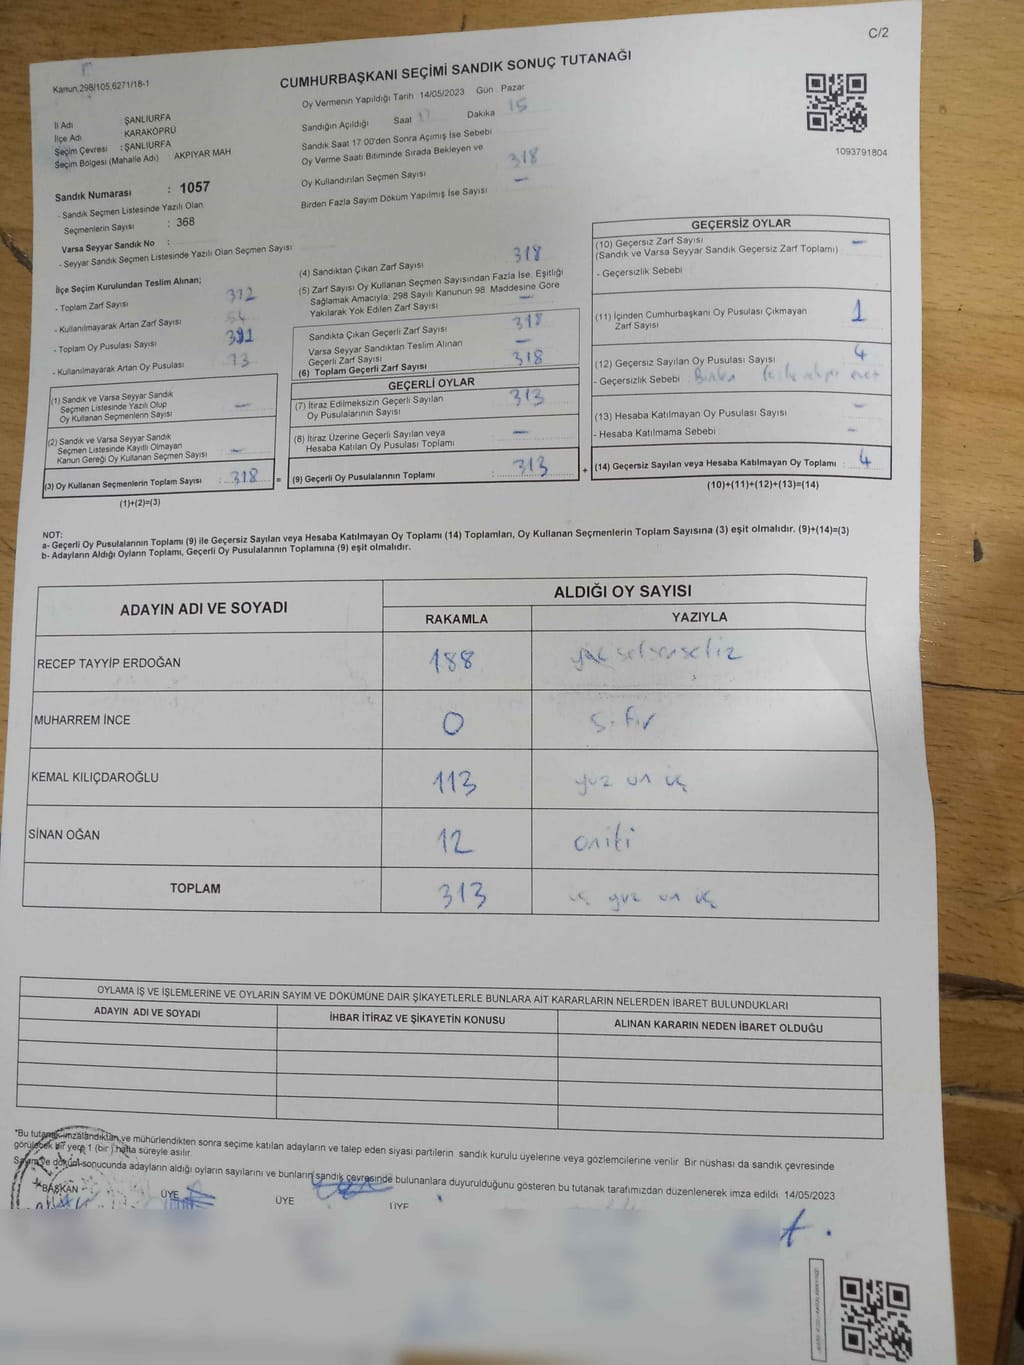 C/2
Kanun 298/105,6271/18-1
CUMHURBAŞKANI SEÇİMİ SANDIK SONUÇ TUTANAĞI
Oy Vermenin Yapıldığı Tarih 14/05/2023 Gün Pazar
İl Adı ŞANLIURFA
İlçe Adı KARAKÖPRÜ
Seçim Çevresi : ŞANLIURFA
Seçim Bölgesi (Mahalle Adı) : AKPIYAR MAH
Sandığın Açıldığı Saat 17 Dakika 15
Sandık Saat 17 00'den Sonra Açımış İse Sebebi
Oy Verme Saati Bitiminde Sırada Bekleyen ve
Oy Kullandırılan Seçmen Sayısı 318
Birden Fazla Sayım Döküm Yapılmış İse Sayısı –
1093791804
Sandık Numarası : 1057
- Sandık Seçmen Listesinde Yazılı Olan
Seçmenlerin Sayısı : 368
Varsa Seyyar Sandık No :
- Seyyar Sandık Seçmen Listesinde Yazılı Olan Seçmen Sayısı
İlçe Seçim Kurulundan Teslim Alınan;
- Toplam Zarf Sayısı 372
- Kullanılmayarak Artan Zarf Sayısı 54
- Toplam Oy Pusulası Sayısı
- Kullanılmayarak Artan Oy Pusulası 73
(1) Sandık ve Varsa Seyyar Sandık
Seçmen Listesinde Yazılı Olup
Oy Kullanan Seçmenlerin Sayısı –
(2) Sandık ve Varsa Seyyar Sandık
Seçmen Listesinde Kayıtlı Olmayan
Kanun Gereği Oy Kullanan Seçmen Sayısı –
(3) Oy Kullanan Seçmenlerin Toplam Sayısı : 318 =
(1)+(2)=(3)
(4) Sandıktan Çıkan Zarf Sayısı 318
(5) Zarf Sayısı Oy Kullanan Seçmen Sayısından Fazla İse, Eşitliği
Sağlamak Amacıyla; 298 Sayılı Kanunun 98. Maddesine Göre
Yakılarak Yok Edilen Zarf Sayısı –
Sandıkta Çıkan Geçerli Zarf Sayısı 318
Varsa Seyyar Sandıktan Teslim Alınan
Geçerli Zarf Sayısı –
(6) Toplam Geçerli Zarf Sayısı 318
GEÇERLİ OYLAR
(7) İtiraz Edilmeksizin Geçerli Sayılan
Oy Pusulalarının Sayısı 313
(8) İtiraz Üzerine Geçerli Sayılan veya
Hesaba Katılan Oy Pusulası Toplamı –
(9) Geçerli Oy Pusulalarının Toplamı : 313 +
GEÇERSİZ OYLAR
(10) Geçersiz Zarf Sayısı –
(Sandık ve Varsa Seyyar Sandık Geçersiz Zarf Toplamı)
- Geçersizlik Sebebi
(11) İçinden Cumhurbaşkanı Oy Pusulası Çıkmayan
Zarf Sayısı 1
(12) Geçersiz Sayılan Oy Pusulası Sayısı 4
- Geçersizlik Sebebi
(13) Hesaba Katılmayan Oy Pusulası Sayısı –
- Hesaba Katılmama Sebebi –
(14) Geçersiz Sayılan veya Hesaba Katılmayan Oy Toplamı : 4
(10)+(11)+(12)+(13)=(14)
NOT:
a- Geçerli Oy Pusulalarının Toplamı (9) ile Geçersiz Sayılan veya Hesaba Katılmayan Oy Toplamı (14) Toplamları, Oy Kullanan Seçmenlerin Toplam Sayısına (3) eşit olmalıdır. (9)+(14)=(3)
b- Adayların Aldığı Oyların Toplamı, Geçerli Oy Pusulalarının Toplamına (9) eşit olmalıdır.
ADAYIN ADI VE SOYADI ALDIĞI OY SAYISI
RAKAMLA YAZIYLA
RECEP TAYYİP ERDOĞAN 188
MUHARREM İNCE 0 sıfır
KEMAL KILIÇDAROĞLU 113 yuz on üç
SİNAN OĞAN 12 oniki
TOPLAM 313 üç yuz on üç
OYLAMA İŞ VE İŞLEMLERİNE VE OYLARIN SAYIM VE DÖKÜMÜNE DAİR ŞİKAYETLERLE BUNLARA AİT KARARLARIN NELERDEN İBARET BULUNDUKLARI
ADAYIN ADI VE SOYADI İHBAR İTİRAZ VE ŞİKAYETİN KONUSU ALINAN KARARIN NEDEN İBARET OLDUĞU
*Bu tutanak imzalandıktan ve mühürlendikten sonra seçime katılan adayların ve talep eden siyasi partilerin sandık kurulu üyelerine veya gözlemcilerine verilir Bir nüshası da sandık çevresinde
görülecek bir yere 1 (bir) hafta süreyle asılır.
Sayım ve döküm sonucunda adayların aldığı oyların sayılarını ve bunların sandık çevresinde bulunanlara duyurulduğunu gösteren bu tutanak tarafımızdan düzenlenerek imza edildi. 14/05/2023
BAŞKAN ÜYE ÜYE ÜYE